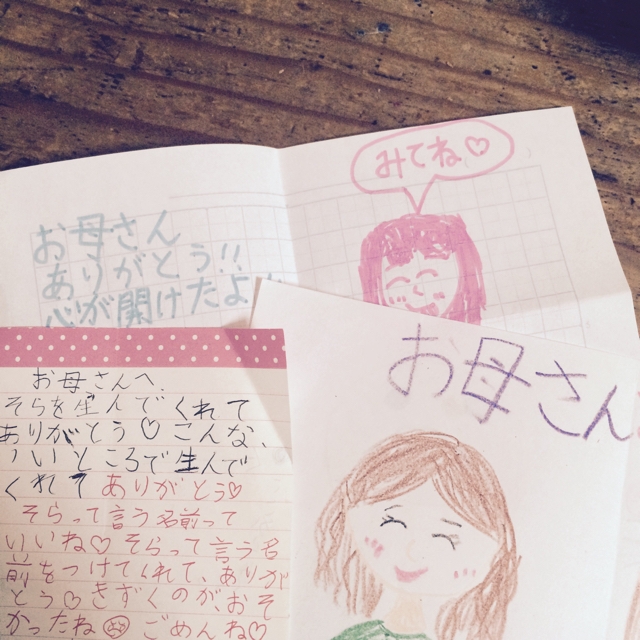 みてね♡
お母さん
ありがとう!!
心が開けたよ
お母さん
お母さんへ、
そらを生んでくれて
ありがとう♡こんな、
いいところで生んで
くれてありがとう♡
そらって言う名前って
いいね♡そらって言う名
前をつけてくれて、ありが
とう♡きずくのが、おそ
かったね☹ごめんね♡